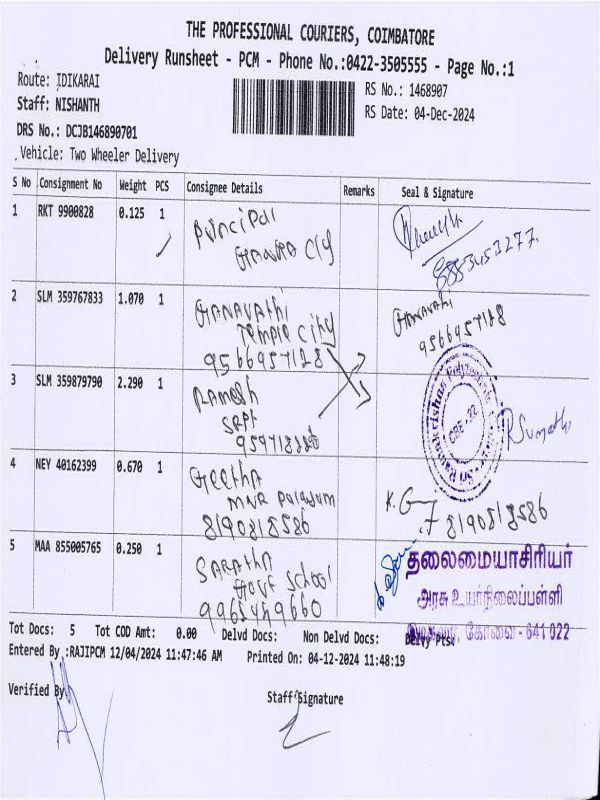 THE PROFESSIONAL COURIERS, COIMBATORE
Delivery Runsheet - PCM - Phone No.:0422-3505555 - Page No.:1
Route: IDIKARAI
Staff: NISHANTH
DRS No.: DCJB146890701
Vehicle: Two Wheeler Delivery
RS No.: 1468907
RS Date: 04-Dec-2024
S No Consignment No Weight PCS Consignee Details Remarks Seal & Signature
1 RKT 9900828 0.125 1
8883453277
2 SLM 359767833 1.070 1
GANAVATHI
TEMPLE CITY
9566957128
GANAVATHI
9566957128
3 SLM 359879790 2.290 1
RAMESH
CBE-22
R Sumathi
4 NEY 40162399 0.670 1
GEETHA
8190818586
K.G
8190818586
5 MAA 855005765 0.250 1
SARATHA
Govt School
தலைமையாசிரியர்
அரசு உயர்நிலைப்பள்ளி
கோவை - 641 022
Tot Docs: 5 Tot COD Amt: 0.00 Delvd Docs: Non Delvd Docs: Delvy Pts:
Entered By :RAJIPCM 12/04/2024 11:47:46 AM Printed On: 04-12-2024 11:48:19
Verified By
Staff Signature